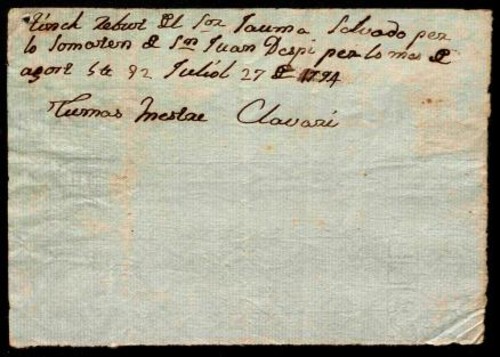 Tinch Rebut de Sor Jauma Salvado per
lo Somaten de Sn Juan Despi per lo mes de
agost 5 # 92 Juliól 27 de 1794
Tumas Mestre Clavari